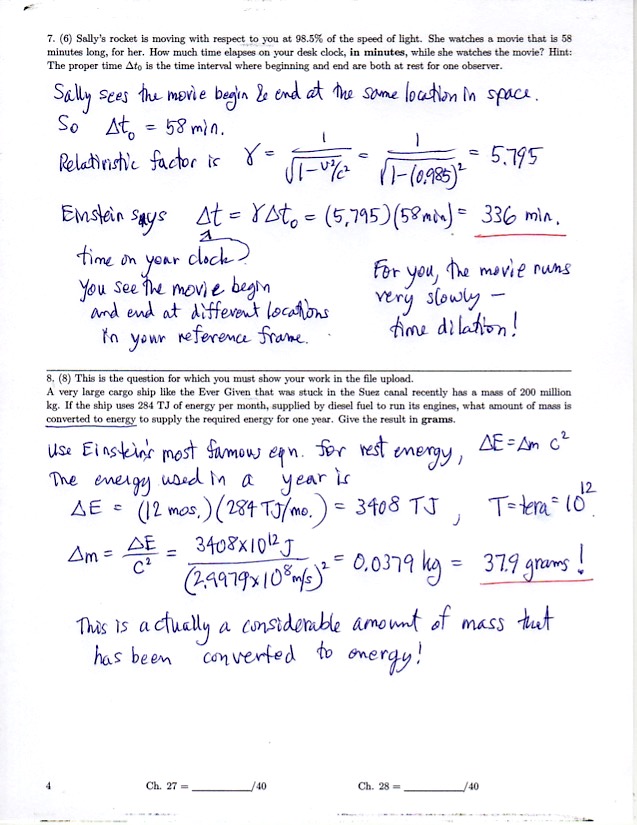 7. (6) Sally's rocket is moving with respect to you at 98.5% of the speed of light. She watches a movie that is 58
minutes long, for her. How much time elapses on your desk clock, in minutes, while she watches the movie? Hint:
The proper time Δt₀ is the time interval where beginning and end are both at rest for one observer.
Sally sees the movie begin & end at the same location in space.
So Δt₀ = 58 min.
Relativistic factor is γ = 1/√(1-v²/c²) = 1/√(1-(0.985)²) = 5.795
Einstein says Δt = γΔt₀ = (5.795)(58 min) = 336 min.
time on your clock
You see the movie begin
and end at different locations
in your reference frame.
For you, the movie runs
very slowly –
time dilation!
8. (8) This is the question for which you must show your work in the file upload.
A very large cargo ship like the Ever Given that was stuck in the Suez canal recently has a mass of 200 million
kg. If the ship uses 284 TJ of energy per month, supplied by diesel fuel to run its engines, what amount of mass is
converted to energy to supply the required energy for one year. Give the result in grams.
Use Einstein's most famous eqn. for rest energy, ΔE = Δm c²
The energy used in a year is
ΔE = (12 mos.)(284 TJ/mo.) = 3408 TJ, T = tera = 10¹².
Δm = ΔE/c² = 3408×10¹² J/(2.9979×10⁸ m/s)² = 0.0379 kg = 37.9 grams!
This is actually a considerable amount of mass that
has been converted to energy!
4 Ch. 27 = ________/40 Ch. 28 = ________/40